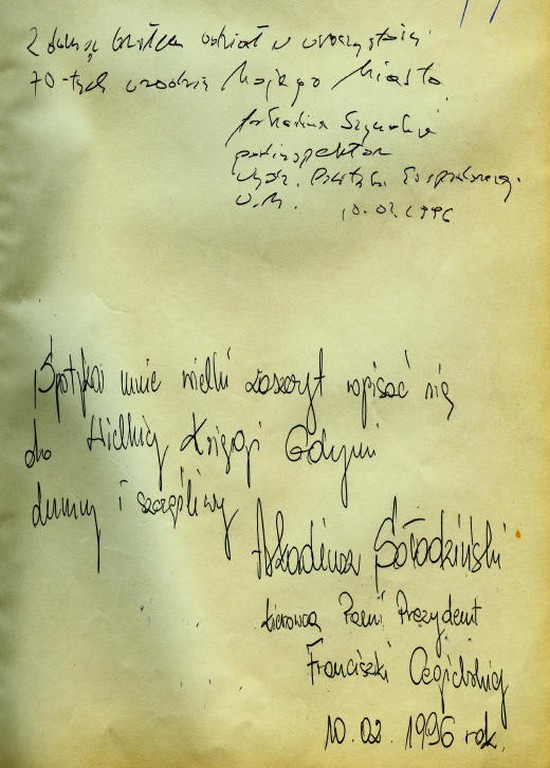 Z dumą brałem udział w uroczystości
70-tych urodzin Mojego Miasta
podinspektor
Wydz. Polityki Gospodarczej
U.M. 10.02.1996
Spotkał mnie wielki zaszczyt wpisać się
do Wielkiej Księgi Gdyni
dumny i szczęśliwy
Arkadiusz Sołodziński
kierowca Pani Prezydent
Franciszki Cegielskiej
10.02.1996 rok.